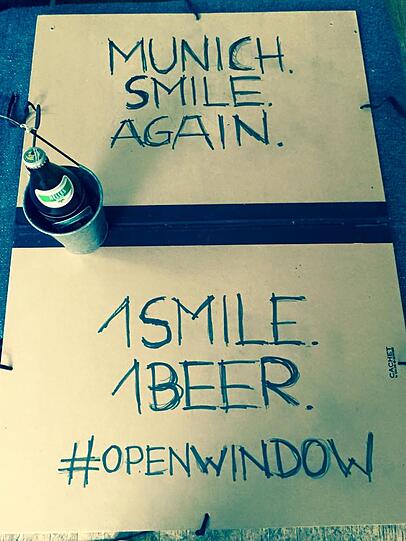 MUNICH.
SMILE.
AGAIN.
1SMILE.
1BEER.
CACHET
#OPENWINDOW